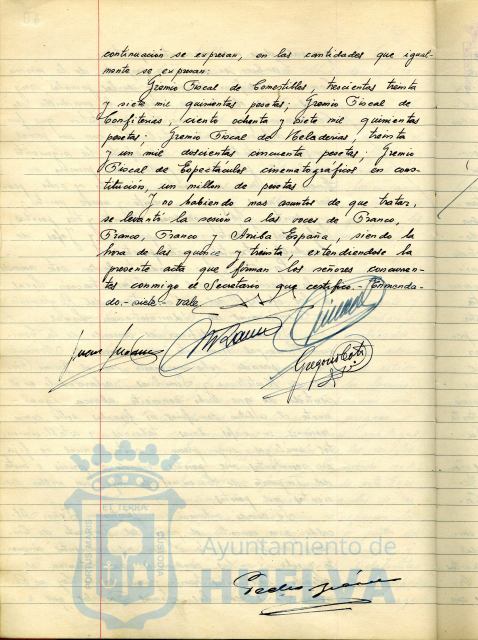 continuación se expresan, en las cantidades que igual-
mente se expresan:
Gremio Fiscal de Comestibles, trescientas treinta
y siete mil quinientas pesetas; Gremio Fiscal de
Confiterías, ciento ochenta y siete mil quinientas
pesetas; Gremio Fiscal de Heladerías, treinta
y un mil doscientas cincuenta pesetas; Gremio
Fiscal de Espectáculos cinematográficos en cons-
titución, un millon de pesetas
Y no habiendo mas asuntos de que tratar,
se levantó la sesión a las voces de Franco,
Franco, Franco y Arriba España, siendo la
hora de las quince y treinta, extendiendose la
presente acta que firman los señores concurren-
tes conmigo el Secretario que certifico.- Enmenda-
do.- siete.- vale.
Gregorio
EL TERRA
PORTUS MARIS
CUSTODIA
Ayuntamiento de
HUELVA
Pedro